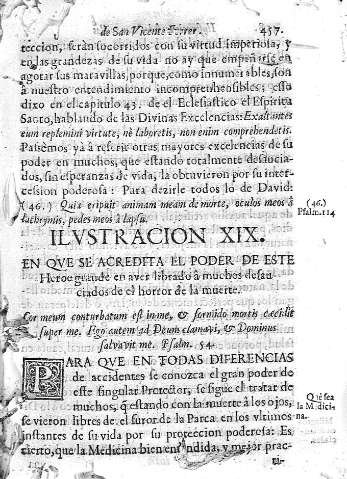 de San Vicente Ferrer. 457.
teccion, serán socorridos con su virtud imperiosa, y
en las grandezas de su vida no ay que empeñarse en
agotar sus maravillas, porque, como innumerables, son
à nuestro entendimiento incomprehensibles; esso
dixo en el capitulo 43. de el Eclesiastico el Espiritu
Santo, hablando de las Divinas Excelencias: Exaltantes
eum replemini virtute, nè laboretis, non enim comprehendetis.
Passèmos yà à referir otras mayores excelencias de su
poder en muchos, que estando totalmente desaucia-
dos, sin esperanzas de vida, la obtuvieron por su inter-
cession poderosa: Para dezirle todos lo de David:
(46.) Quia eripuit animam meam de morte, oculos meos à
lachrymis, pedes meos à lapsu.
(46.)
Psalm. 114
ILVSTRACION XIX.
EN QVE SE ACREDITA EL PODER DE ESTE
Heroe grande en aver librado à muchos desau-
ciados de el horror de la muerte.
Cor meum conturbatum est in me, & formido mortis cecidit
super me. Ego autem ad Deum clamavi, & Dominus
salvavit me. Psalm. 54.
PARA QVE EN TODAS DIFERENCIAS
de accidentes se conozca el gran poder de
este singular Protector, se sigue el tratar de
muchos, q̃ estando con la muerte à los ojos,
se vieron libres de el furor de la Parca en los vltimos
instantes de su vida por su proteccion poderosa: Es
cierto, que la Medicina bien entendida, y mejor prac-
Què sea
la Medici-
na.